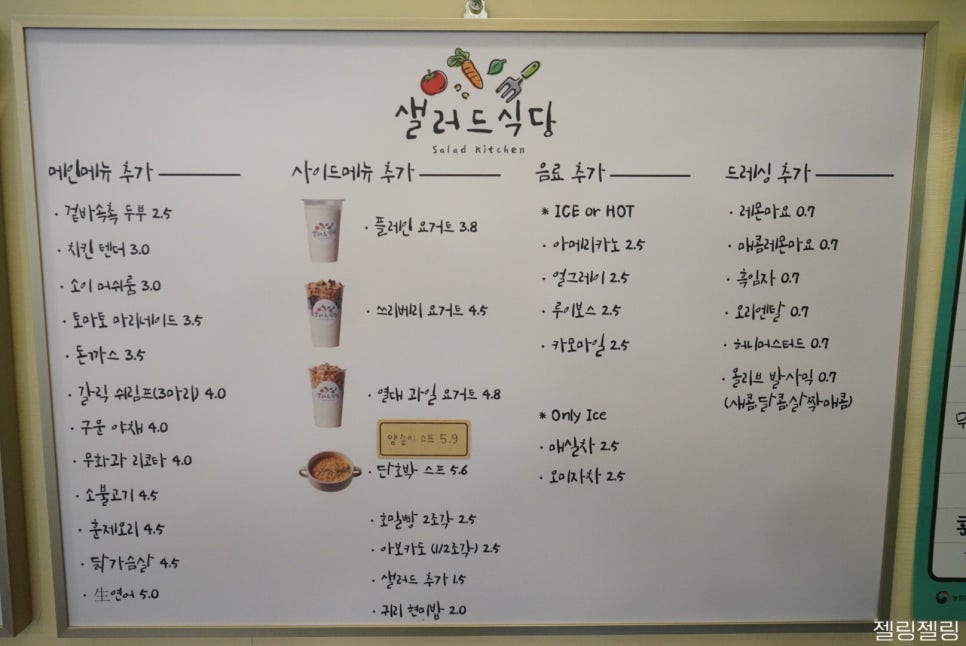 샐러드식당
Salad Kitchen
메인메뉴 추가
· 겉바속촉 두부 2.5
· 치킨 텐더 3.0
· 소이 머쉬룸 3.0
· 토마토 마리네이드 3.5
· 돈까스 3.5
· 갈릭 쉬림프(3마리) 4.0
· 구운 야채 4.0
· 무화과 리코타 4.0
· 소불고기 4.5
· 훈제오리 4.5
· 닭가슴살 4.5
· 生연어 5.0
사이드메뉴 추가
· 플레인 요거트 3.8
· 쓰리베리 요거트 4.5
· 열대 과일 요거트 4.8
양송이 스프 5.9
· 단호박 스프 5.6
· 호밀빵 2조각 2.5
· 아보카도 (1/2조각) 2.5
· 샐러드 추가 1.5
· 귀리 현미밥 2.0
음료 추가
* ICE or HOT
· 아메리카노 2.5
· 얼그레이 2.5
· 루이보스 2.5
· 카모마일 2.5
* Only Ice
· 매실차 2.5
· 오미자차 2.5
드레싱 추가
· 레몬마요 0.7
· 매콤레몬마요 0.7
· 흑임자 0.7
· 오리엔탈 0.7
· 허니머스터드 0.7
· 올리브 발사믹 0.7
(새콤,달콤,살짝매콤)
젤링젤링